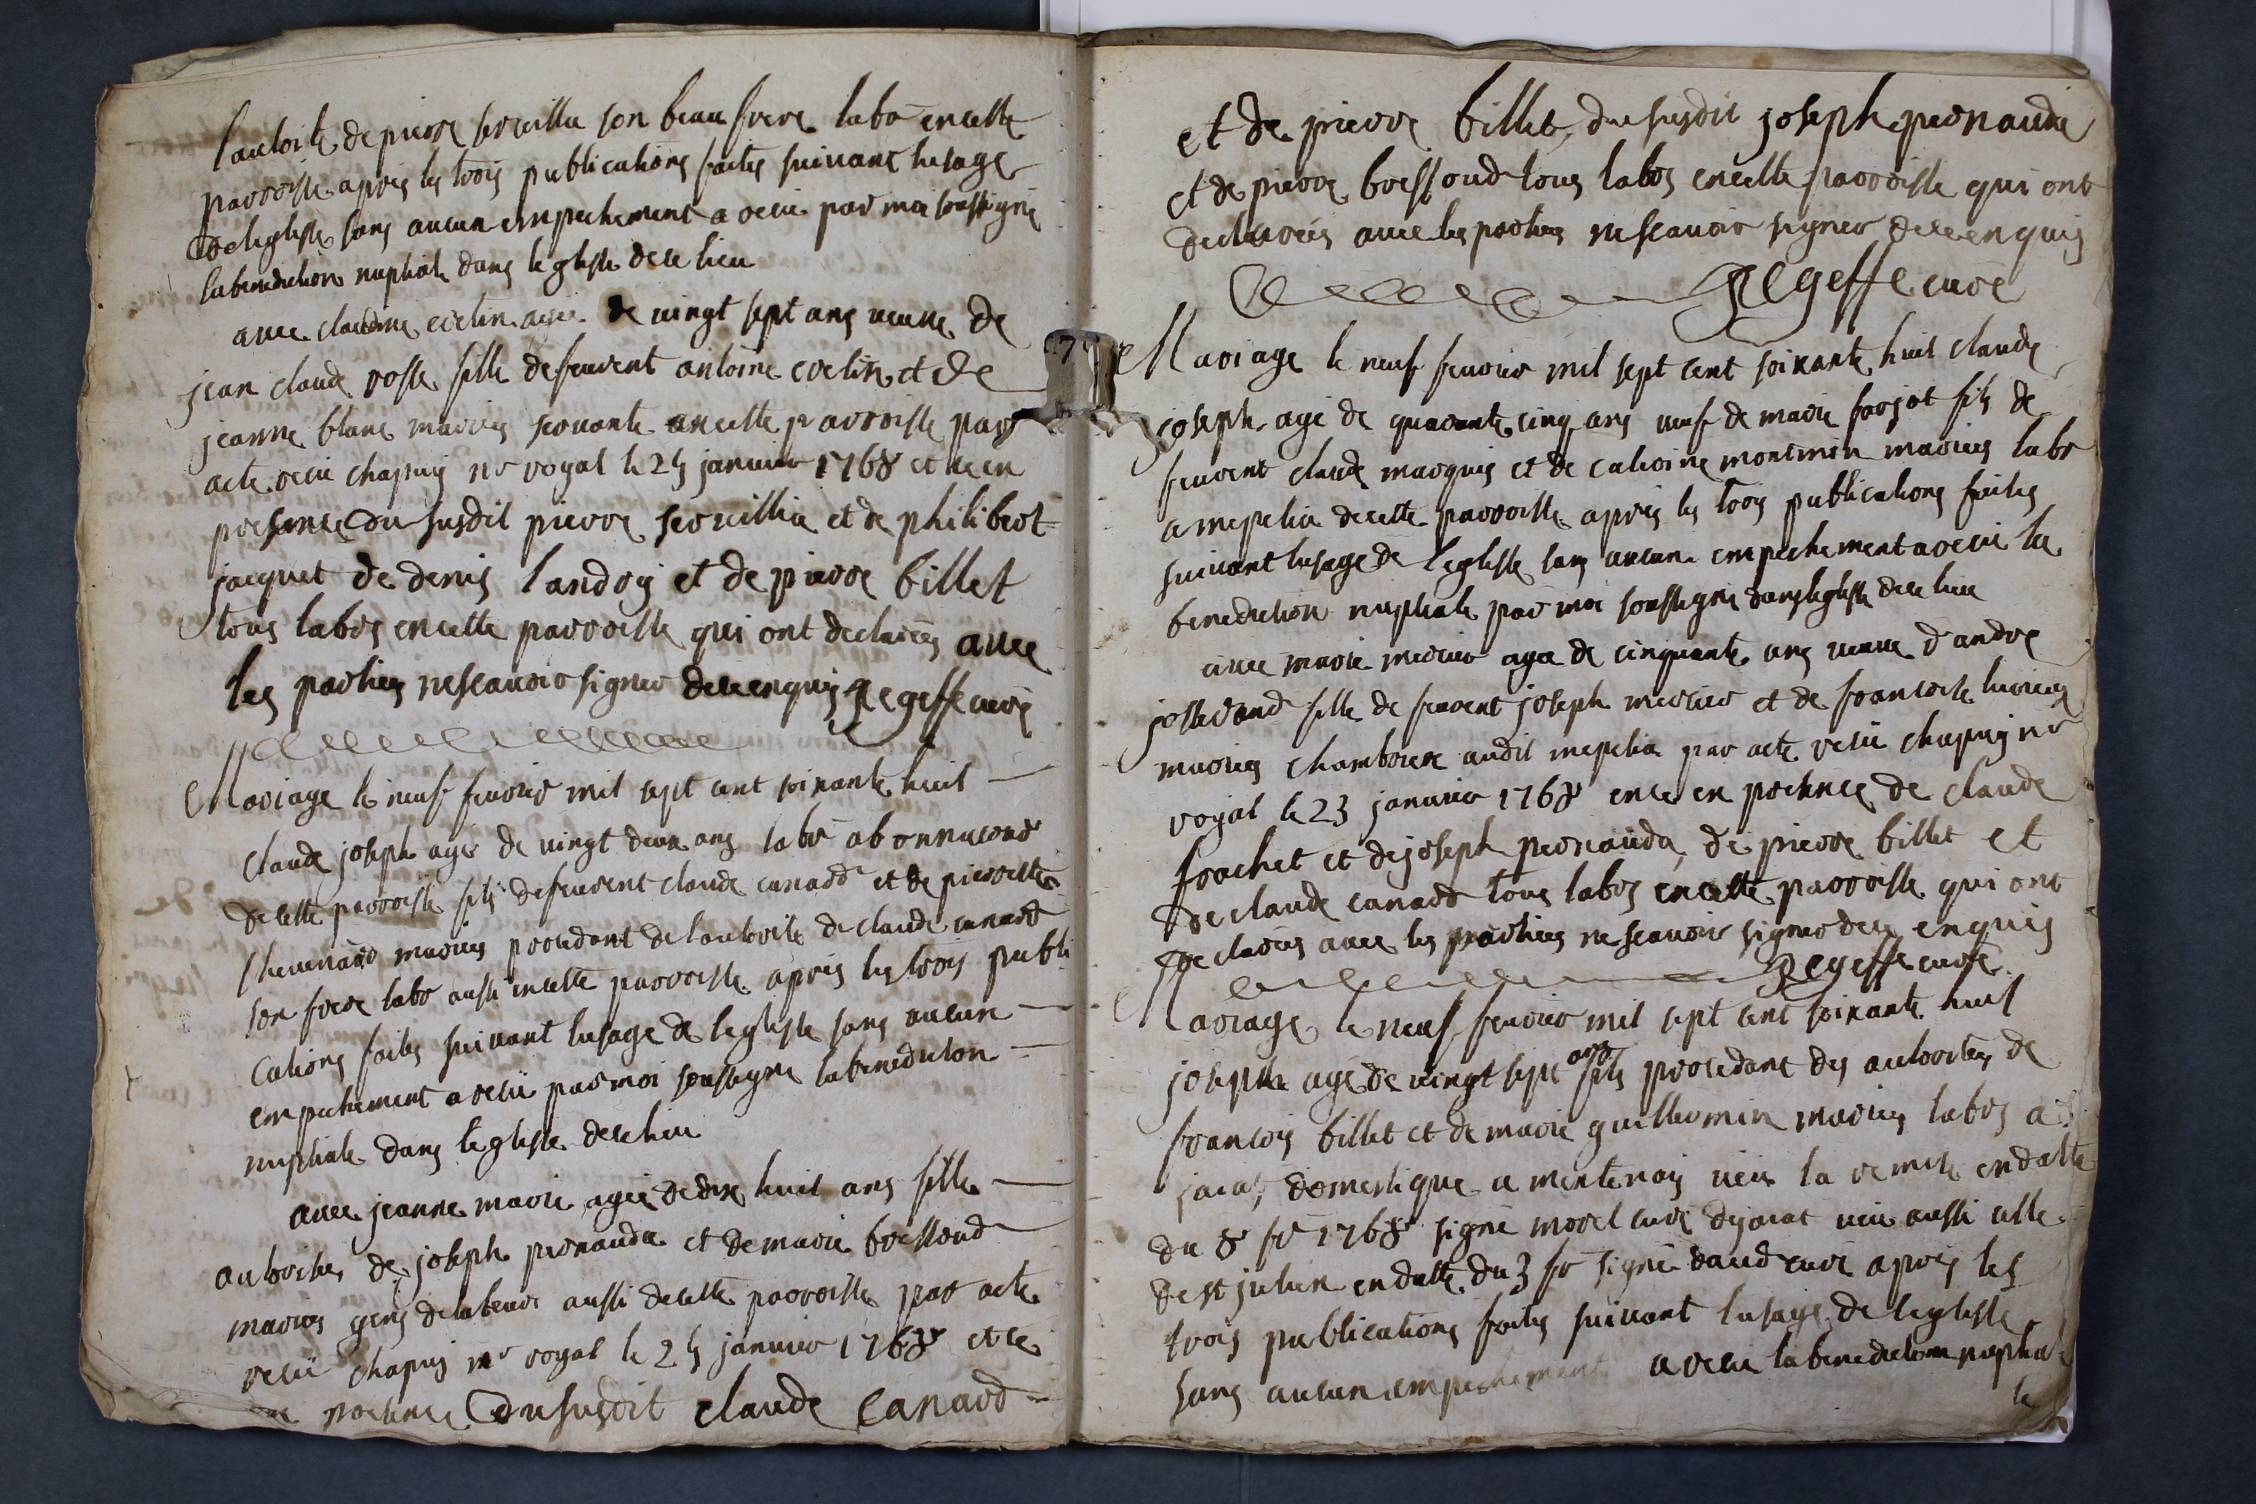 lautoité de pierre servillia son beau frere labo encette
parroisse apres les trois publications faites suivant lusage
de leglisse sans aucun empechement a recu par moi soussigné
la benediction nuptiale dans leglisse de ce lieu
avec claudine evelin agée de vingt sept ans veuve de
jean claude rosse fille defeuvent antoine evelin et de
jeanne blanc mariés servante encette parroisse par
acte recu chapuis nre royal le 25 janvier 1768 et ce en
presence du susdit pierre servillia et de philibert
jacquet de denis landry et de pierre billet
tous labrs encette parroisse qui ont declarées avec
les parties nescavoir signer dece enquis Regeffe curé
Mariage le neuf fevrier mil sept cent soixante huit
claude joseph agé de vingt deux ans labr abonnacond
decette parroisse fils defeuvent claude canard et de pierrette
thevenard mariés procedant de lautorité de claude canard
son frere labr aussi encette parroisse apres les trois publi
cations faites suivant lusage de leglisse sans aucun
empechement a recu par moi soussigné labenediction
nuptiale dans leglisse dece lieu
avec jeanne marie agée dedix huit ans fille
autorités de joseph pernauda et demarie bressoud
mariés gens delabeur aussi decette parroisse par acte
recu chapuis nre royal le 25 janvier 1768 et ce
en presence du susdit claude Canard
et de pierre billet, du susdit joseph pernauda
et de pierre bressoud tous labrs encette parroisse qui ont
declarées avec les parties nescavoir signer dece enquis
Regeffe curé
Mariage le neuf fevrier mil sept cent soixante huit claude
joseph agé de quarante cinq ans veuf de marie farjot fils de
feuvent claude marquis et de catherine montmin mariés labr
a mepelia decette parroisse apres les trois publications faites
suivant lusage de leglisse sans aucun empechement a recu la
benediction nuptiale par moi soussigné dans leglisse dece lieu
avec marie mercier agée de cinquante ans veuve dandré
josserand fille de feuvent joseph mercier et de francoise
mariés chambriere audit mepelia par acte recu chapuis nre
royal le 23 janvier 1768 et ce en presence de claude
frachet et dejoseph pernauda, de pierre billet et
de claude canard tous labrs encette parroisse qui ont
declarées avec les parties nescavoir signer dece enquis
Regeffe curé
Mariage le neuf fevrier mil sept cent soixante huit
joseph agé de vingt sept ans fils procedant des autorités de
francois billet et de marie guillermin mariés labrs a
jaiat, domestique a mentenay veu la remise endatte
du 8 fr 1768 signé morel curé dejaiat veu aussi celle
de st julien endatte du 3 fr signé vaud curé apres les
trois publications faites suivant lusage de leglisse
sans aucun empechement a recu labenediction nuptia
le